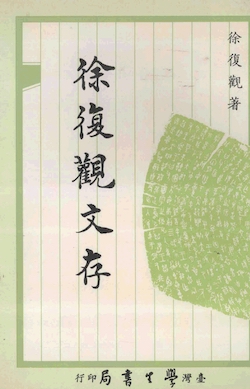 徐復觀著
徐復觀文存
臺灣學生書局印行